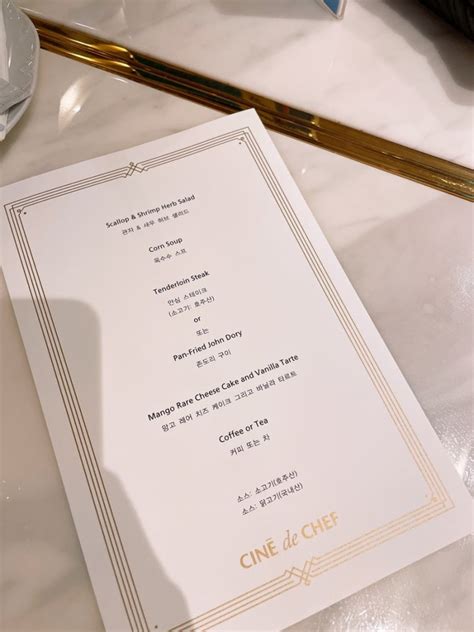 Scallop & Shrimp Herb Salad
관자 & 새우 허브 샐러드
Corn Soup
옥수수 스프
Tenderloin Steak
안심 스테이크
(소고기: 호주산)
or
또는
Pan-Fried John Dory
존도리 구이
Mango Rare Cheese Cake and Vanilla Tarte
망고 레어 치즈 케이크 그리고 바닐라 타르트
Coffee or Tea
커피 또는 차
소스: 소고기(호주산)
소스: 닭고기(국내산)
CINÉ de CHEF